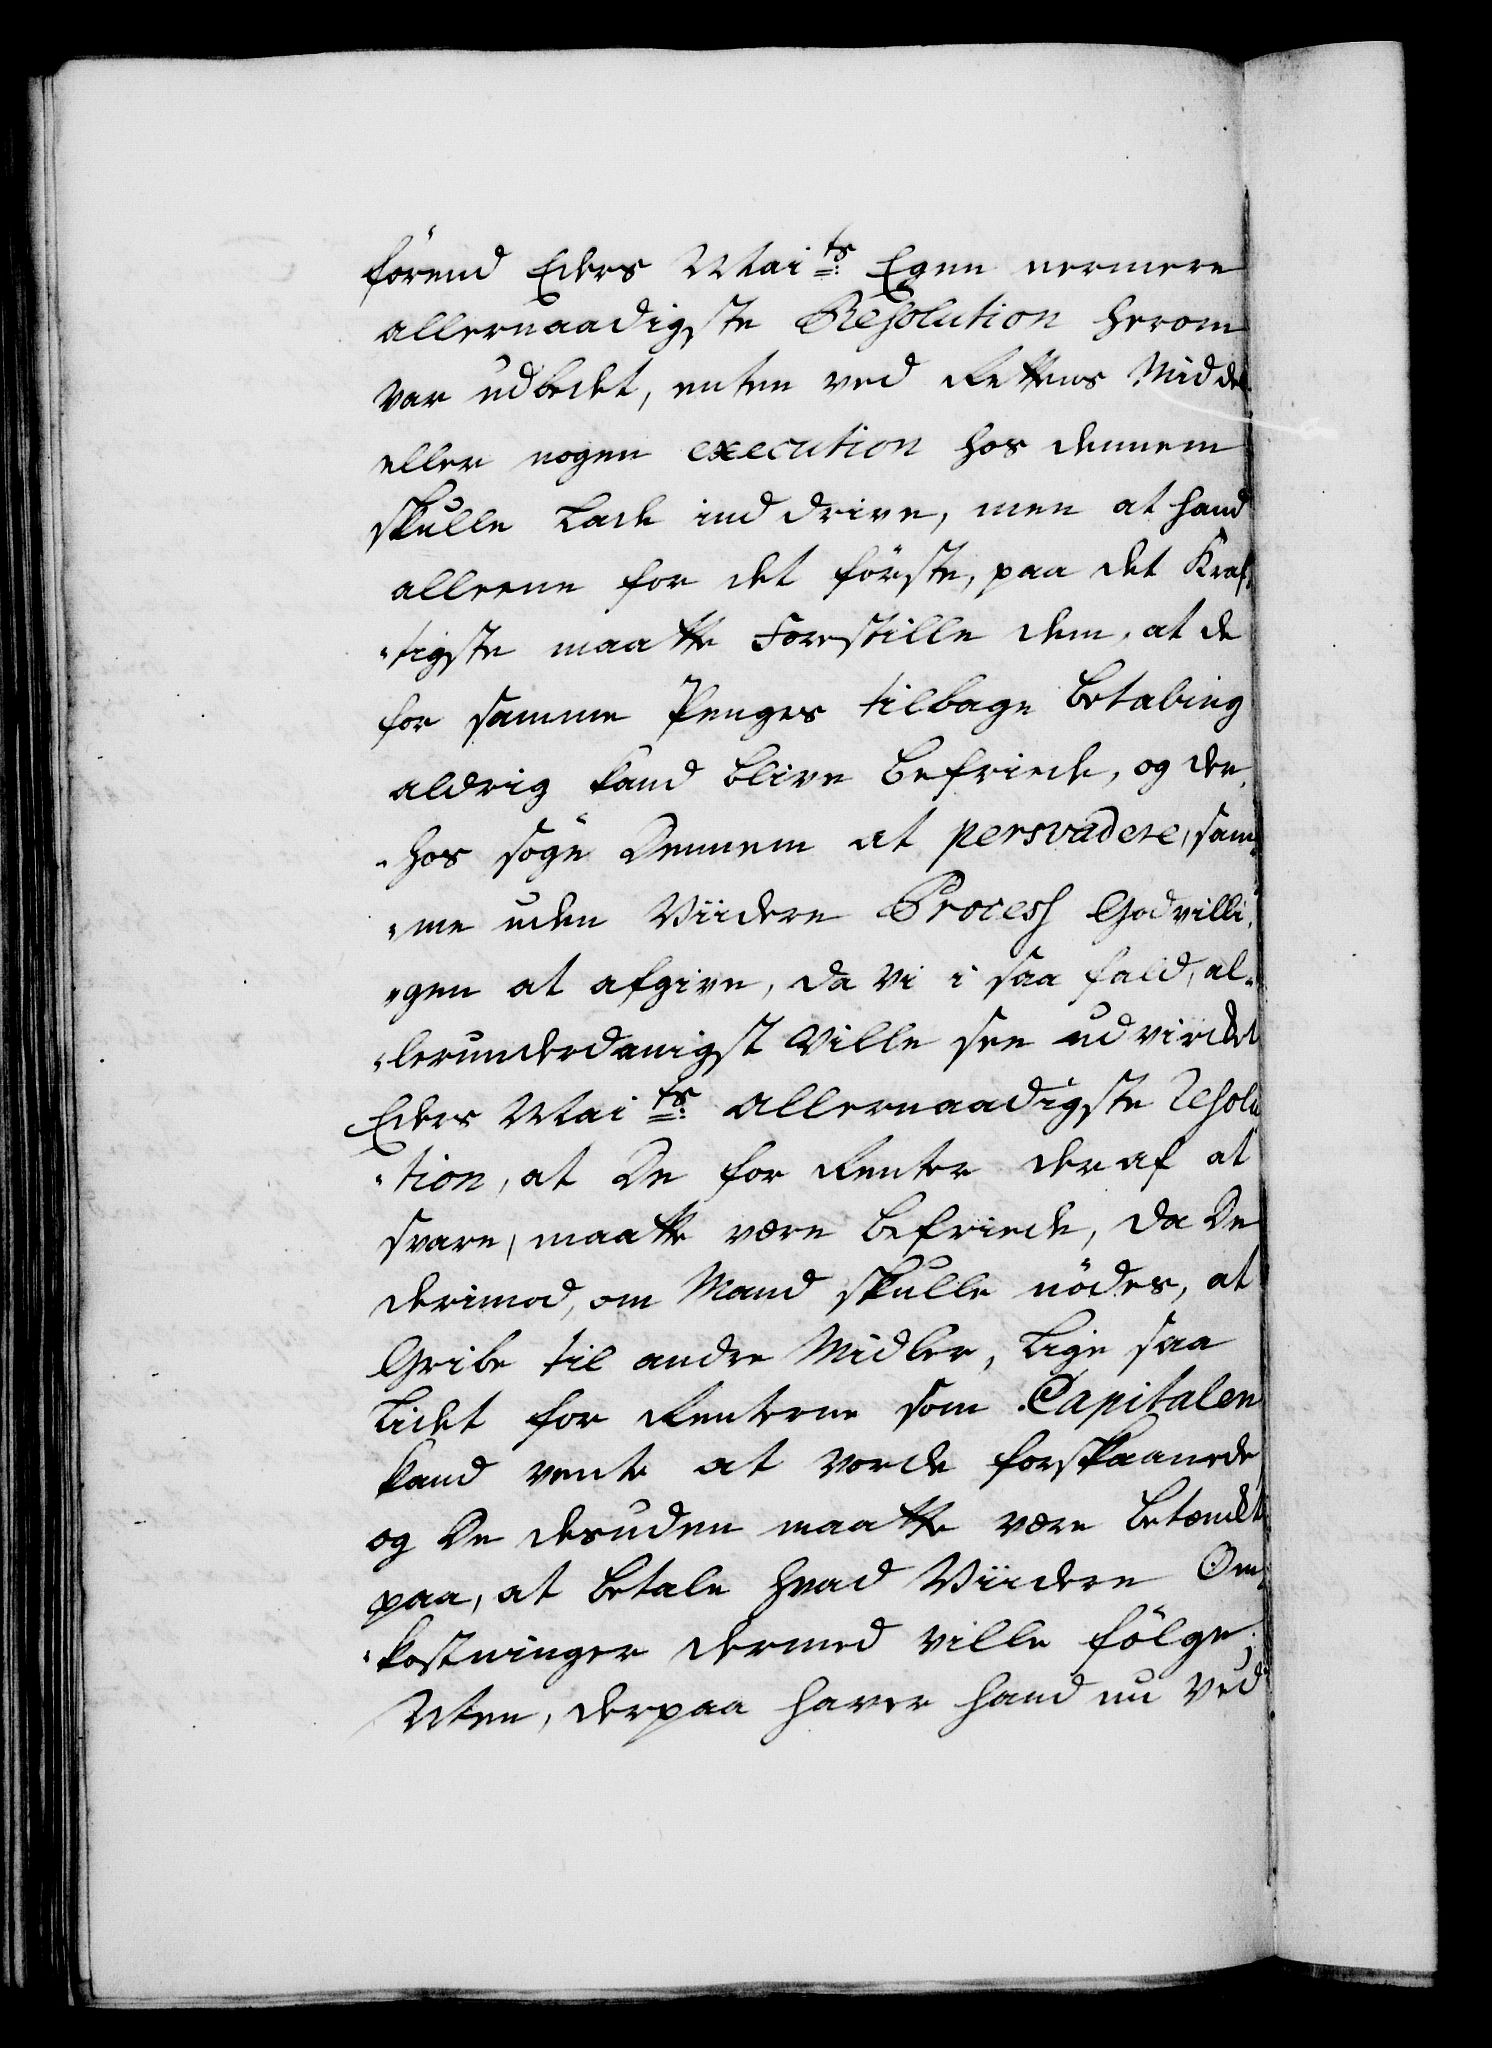 förend Eders Mai<sup>ts</sup>: Egen nermere
allernaadigste Resolution herom
var udbedet, enten ved Rettens Middel
eller nogen execution hos dennem
skulle Lade ind drive, men at hand
alleene for det förste, paa det Kraf-
"tigste maatte Forestille dem, at de
for samme Penges tilbage betaling
aldrig kand blive befriede, og der-
"hos söge Dennem at persvadere, sam-
"me uden Viidere Process Godvilli-
"gen at afgive, da vi i saa fald, al-
"lerunderdanigst Ville see udvirket
Eders Mai<sup>ts</sup>: allernaadigste Resolu
"tion, at De for Renter deraf at
svare, maatte være befriede, da De
derimod, om Mand skulle nödes, at
Gribe til andre Midler, Lige saa
Lidet for Renterne som Capitalen
kand vente at vorde forskaanede
og De desuden maatte være betænkt
paa, at betale hvad Viidere Om-
"kostninger dermed ville fölge.
Men, derpaa haver hand nu ved